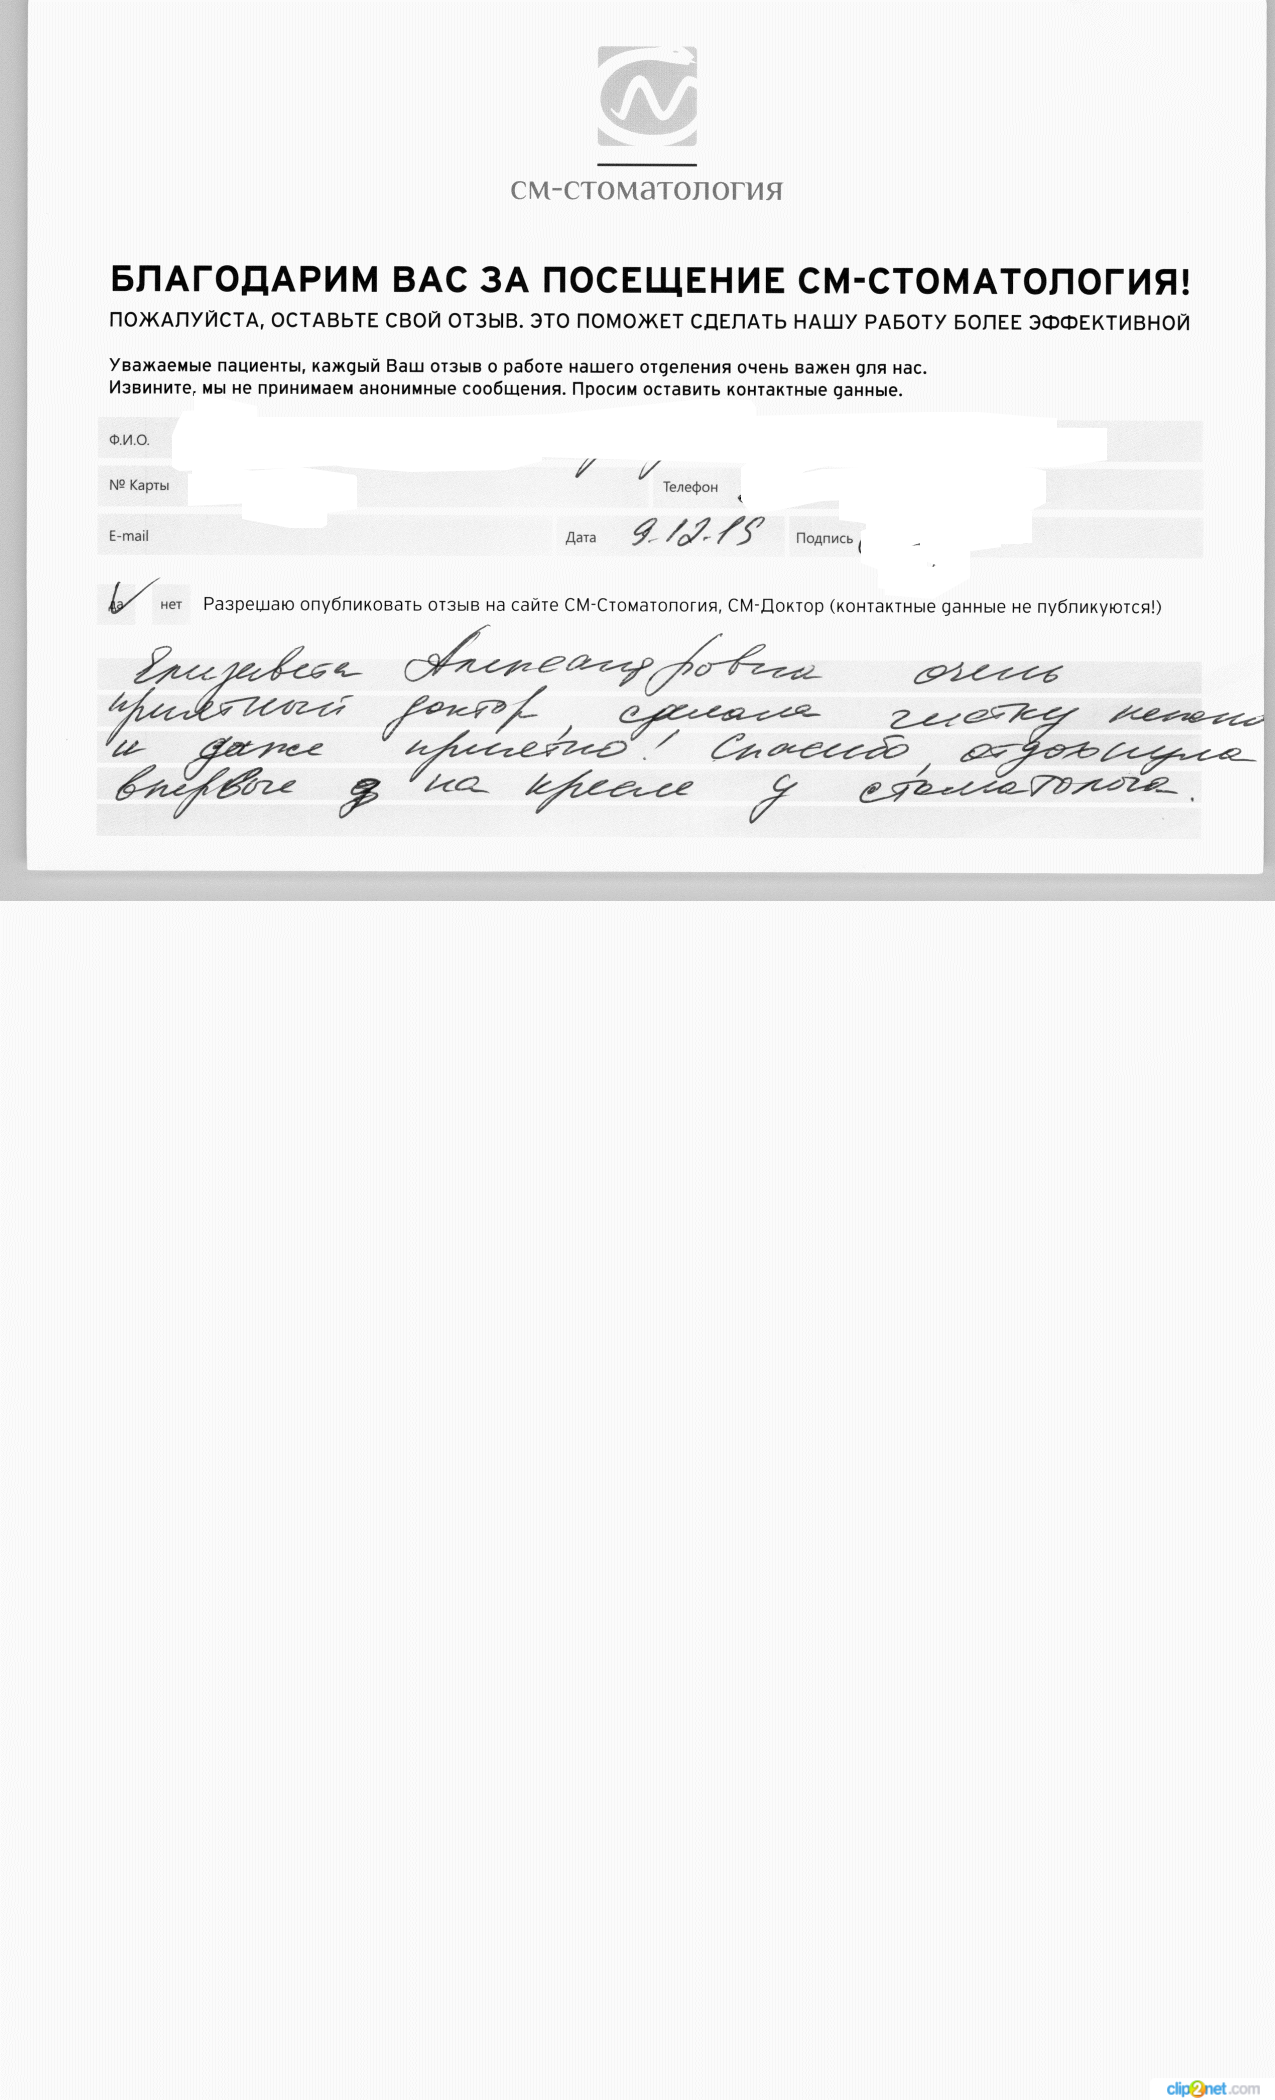 см-стоматология
БЛАГОДАРИМ ВАС ЗА ПОСЕЩЕНИЕ СМ-СТОМАТОЛОГИЯ!
ПОЖАЛУЙСТА, ОСТАВЬТЕ СВОЙ ОТЗЫВ. ЭТО ПОМОЖЕТ СДЕЛАТЬ НАШУ РАБОТУ БОЛЕЕ ЭФФЕКТИВНОЙ
Уважаемые пациенты, каждый Ваш отзыв о работе нашего отделения очень важен для нас.
Извините, мы не принимаем анонимные сообщения. Просим оставить контактные данные.
Ф.И.О.
№ Карты Телефон
E-mail Дата 9.12.15 Подпись
да нет Разрешаю опубликовать отзыв на сайте СМ-Стоматология, СМ-Доктор (контактные данные не публикуются!)
Елизавета Александровна очень
приятный доктор, сделала чистку
и даже приятно! Спасибо, отдохнула
впервые на кресле у стоматолога.
clip2net.com